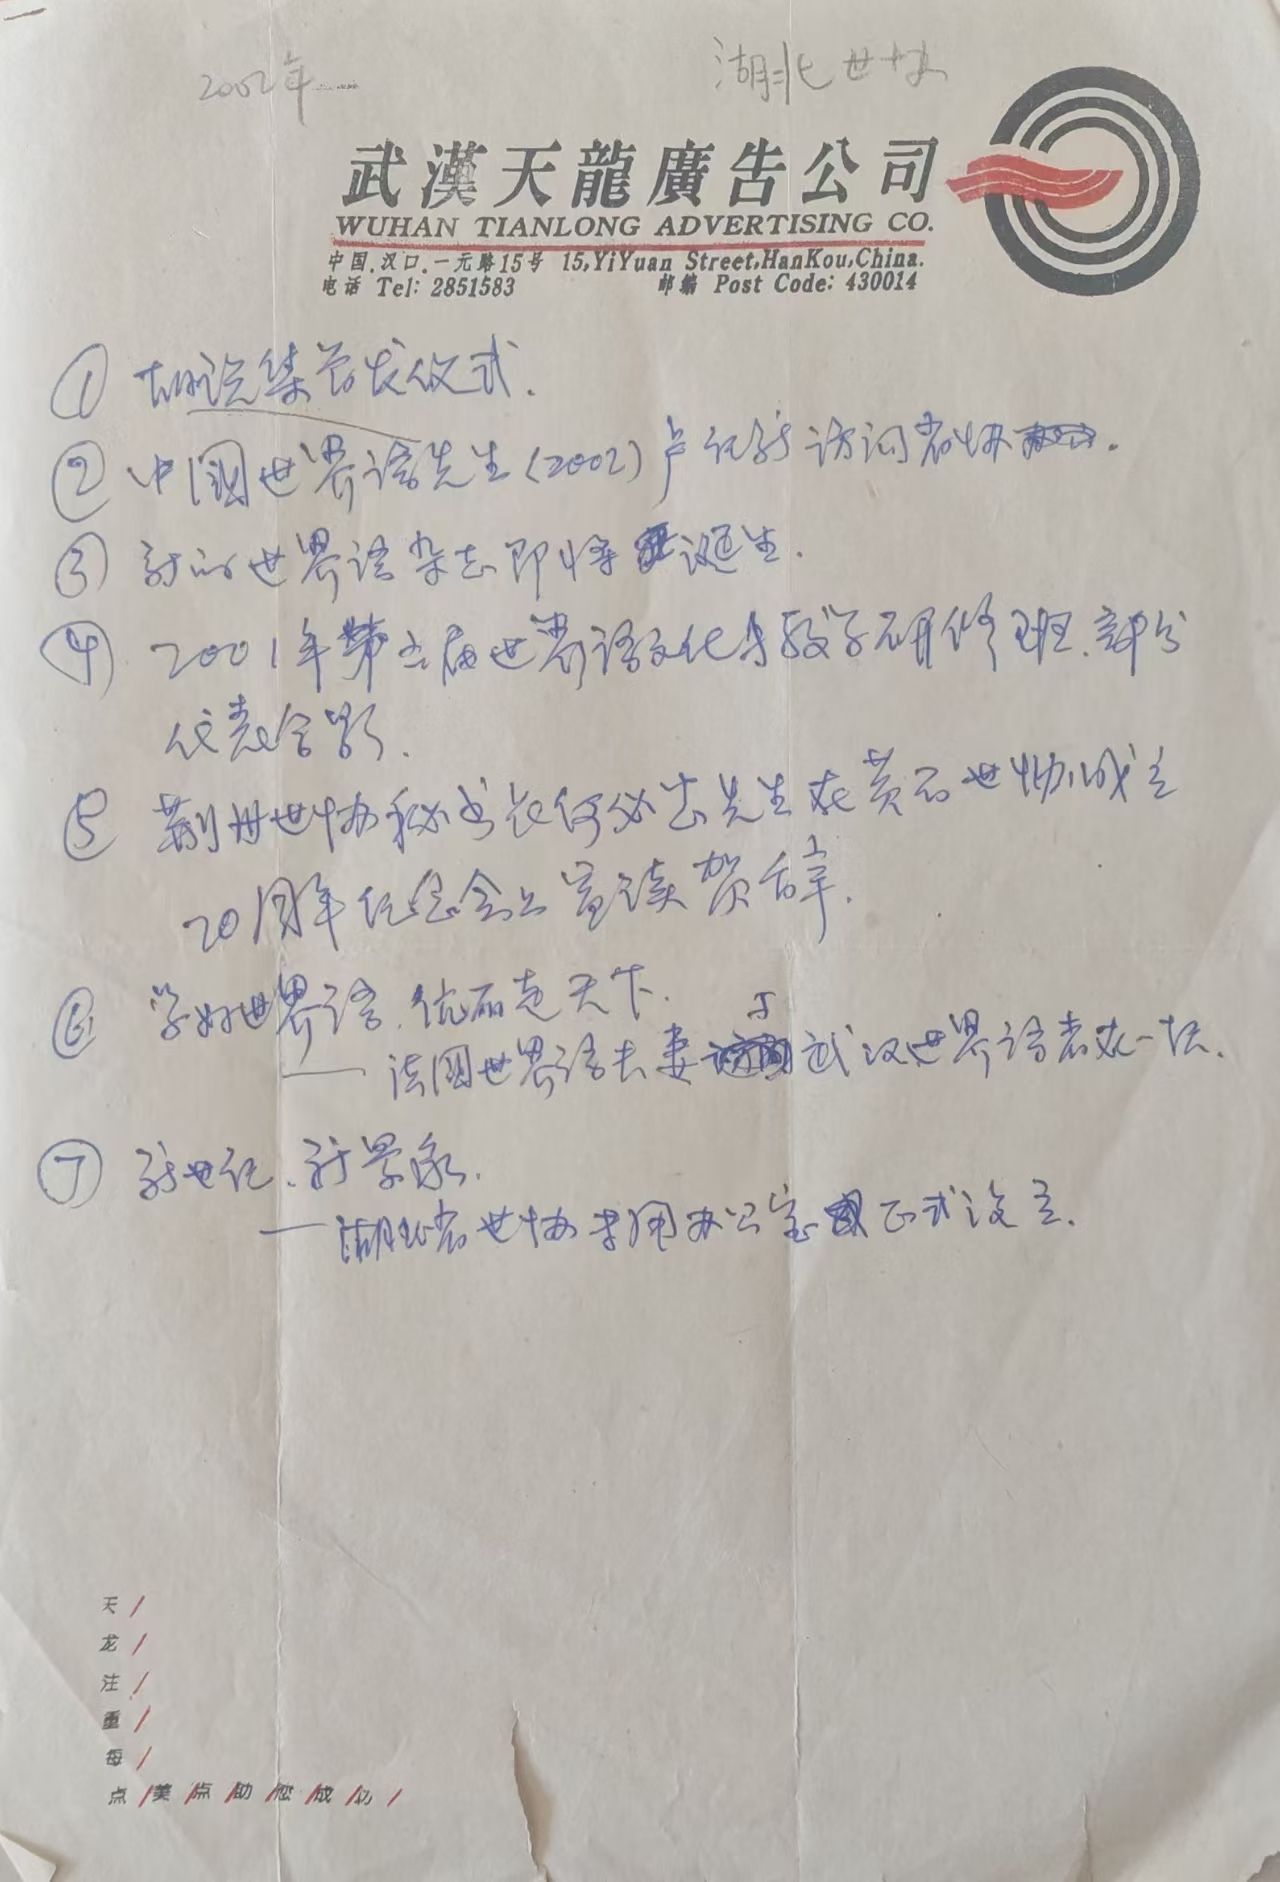 2002年
湖北世协
武漢天龍廣告公司
WUHAN TIANLONG ADVERTISING CO.
中国.汉口.一元路15号 15,YiYuan Street,HanKou,China.
电话 Tel: 2851583 邮编 Post Code: 430014
① 首发仪式.
② 中国世界语先生(2002)卢 访问省协.
③ 新的世界语杂志即将诞生.
④ 2001年第五届世界语文化与教学研修班.部分
代表合影.
⑤ 荆州世协秘书长何必云先生在黄石世协成立
20周年纪念会上宣读贺辞.
⑥ 学好世界语.走天下.
——法国世界语夫妻与武汉世界语者在一起.
⑦ 新世纪.新景象.
——湖北省世协专用办公室正式设立.
天/
龙/
注/
重/
每/
点/美/点/助/您/成/功/